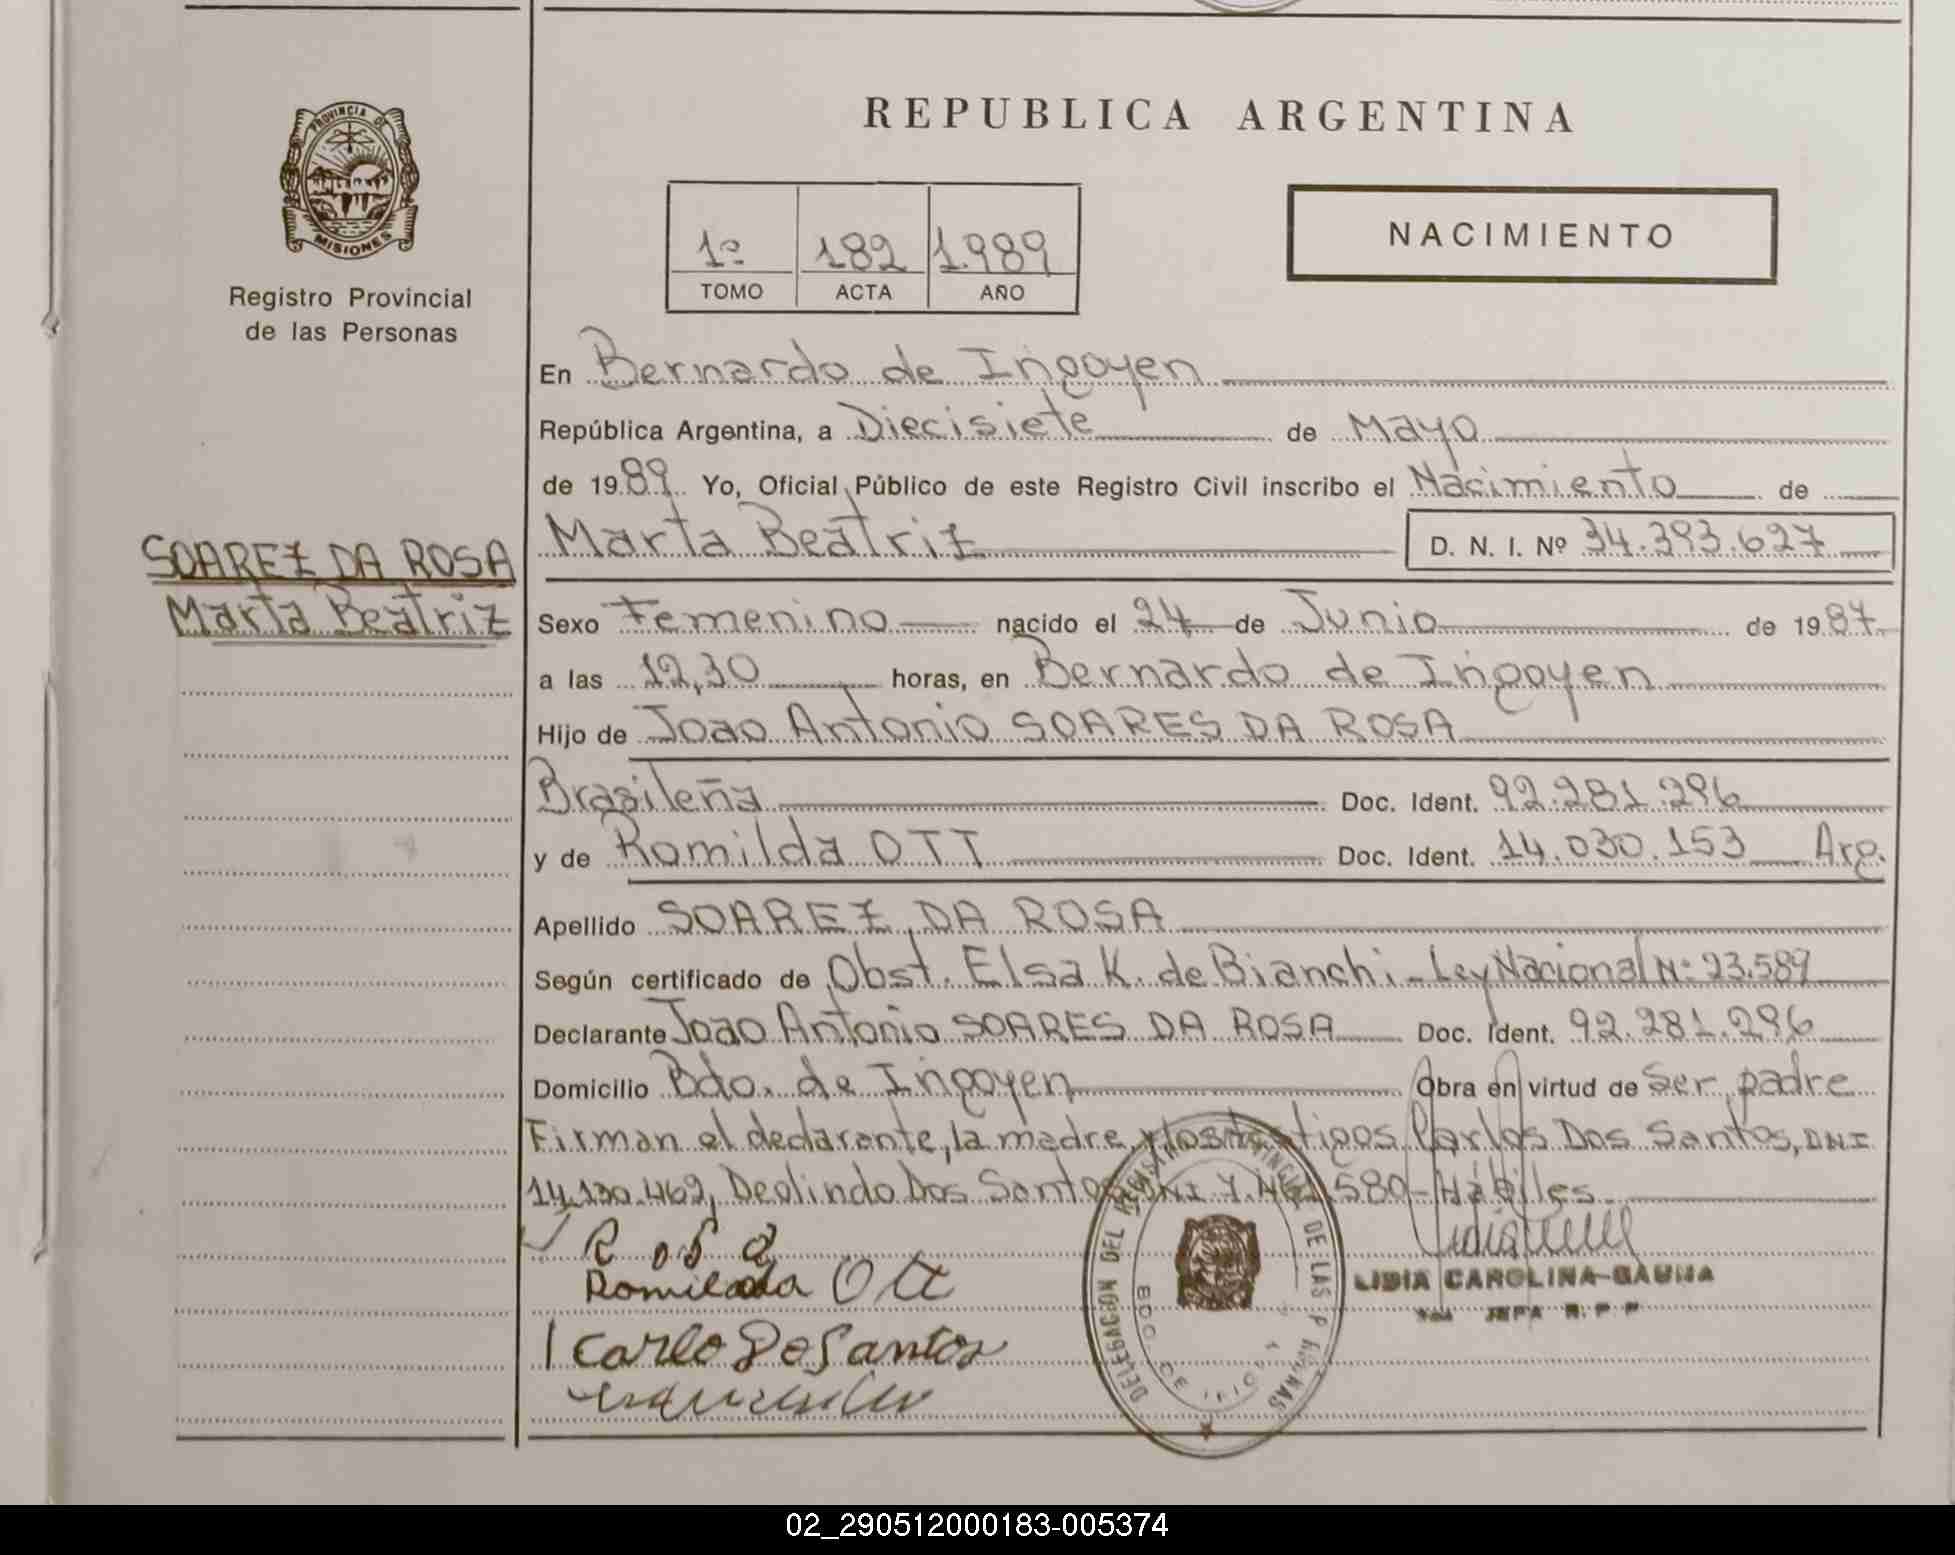 REPUBLICA ARGENTINA
PROVINCIA DE
MISIONES
Registro Provincial
de las Personas
1º 182 1.989
TOMO ACTA AÑO
NACIMIENTO
En Bernardo de Irigoyen
República Argentina, a Diecisiete de Mayo
de 1989. Yo, Oficial Público de este Registro Civil inscribo el Nacimiento de
Marta Beatriz D. N. I. Nº 34.393.627
SOAREZ DA ROSA
Marta Beatriz
Sexo Femenino nacido el 24 de Junio de 1987.
a las 12,30 horas, en Bernardo de Irigoyen
Hijo de Joao Antonio SOARES DA ROSA
Brasileña Doc. Ident. 92.281.296
y de Romilda OTT Doc. Ident. 14.030.153 Arg.
Apellido SOAREZ DA ROSA
Según certificado de Obst. Elsa K. de Bianchi - Ley Nacional Nº 23.589
Declarante Joao Antonio SOARES DA ROSA Doc. Ident. 92.281.296
Domicilio Bdo. de Irigoyen Obra en virtud de ser padre
Firman el declarante, la madre y los testigos Carlos Dos Santos, DNI
14.130.469, Deolindo Dos Santos DNI 580 - Hábiles
Rosa
Romilda Ott
Carlo Do Santos
DELEGACION DEL REGISTRO PROVINCIAL DE LAS PERSONAS
BDO. DE IRIGOYEN
LIDIA CAROLINA GAUNA
JEFA R.P.P
02_290512000183-005374